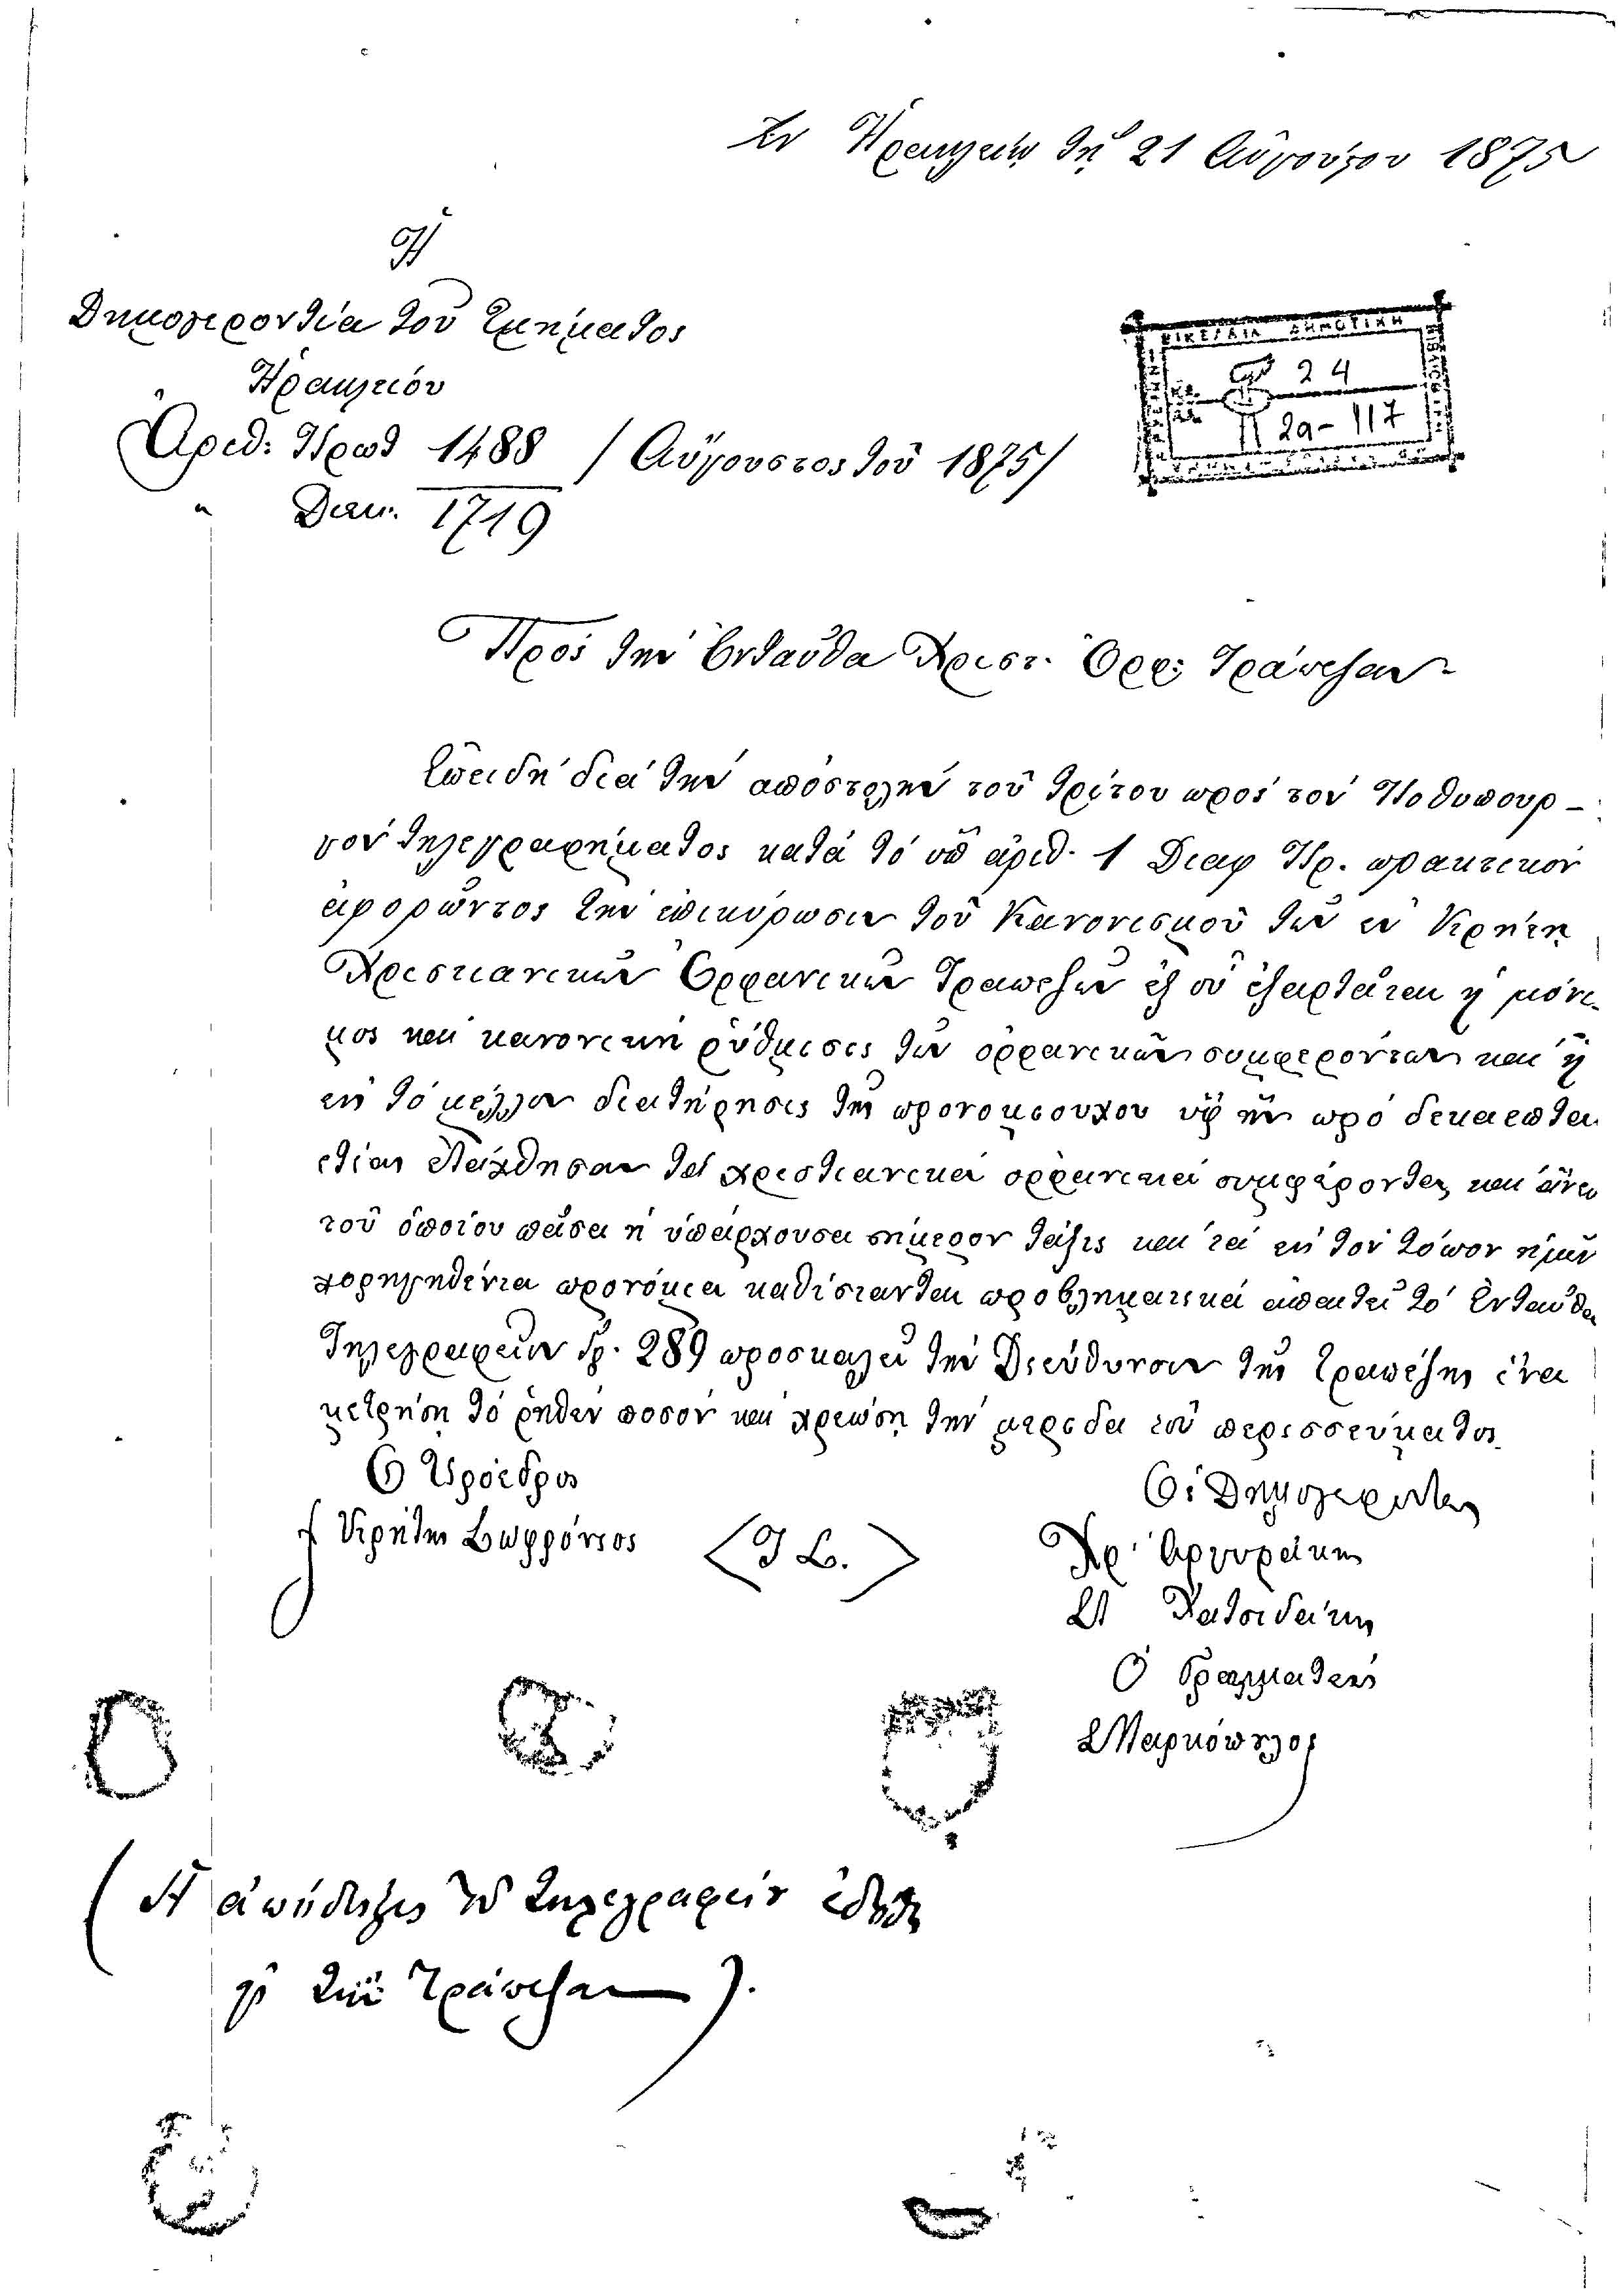 Ἐν Ἡρακλείῳ τῇ 21 Αὐγούστου 1875
Ἡ
Δημογεροντία τοῦ τμήματος
Ἡρακλείου
Ἀριθ: Πρωτ 1488 / Αὔγουστος τοῦ 1875/
Διακ. 1719
ΒΙΚΕΛΑΙΑ ΔΗΜΟΤΙΚΗ
24
2α-117
Πρὸς τὴν ἐνταῦθα Χριστ. Ὀρφ: Τράπεζαν
Ἐπειδὴ διὰ τὴν ἀπόστολὴν τοῦ τρίτου πρὸς τὸν Πρθυπουρ-
γὸν τηλεγραφήματος κατὰ τὸ ὑπ ἀριθ. 1 Διαφ Πρ. πρακτικὸν
ἀφορῶντος τὴν ἐπικύρωσιν τοῦ Κανονισμοῦ τῶν ἐν Κρήτῃ
Χριστιανικῶν Ὀρφανικῶν Τραπεζῶν ἐξ οὗ ἐξαρτᾶται ἡ μόνι-
μος καὶ κανονικὴ ρύθμισις τῶν ὀρφανικῶν συμφερόντων καὶ ἡ
εἰς τὸ μέλλον διατήρησις τῆς προνομιούχου ὑφ ἣν πρὸ δεκαεπτα
ετίας ἐτάχθησαν τὰ χριστιανικὰ ὀρφανικὰ συμφέροντα, καὶ ἄνευ
τοῦ ὁποίου πᾶσα ἡ ὑπάρχουσα σήμερον τάξις καὶ τὰ εἰς τὸν τόπον ἡμῶν
χορηγηθέντα προνόμια καθίστανται προβληματικὰ ἀπαιτεῖ τὸ ἐνταῦθα
Τηλεγραφεῖον Γρ. 289 προσκαλεῖ τὴν Διεύθυνσιν τῆς Τραπέζης ἵνα
μετρήσῃ τὸ ρηθὲν ποσὸν καὶ χρεώσῃ τὴν μερίδα τοῦ περισσεύματος.
Ὁ Πρόεδρος
Οἱ Δημογέροντες
† Κρήτης Σωφρόνιος
<Τ Σ.>
Χρ. Ἀργυράκης
Χατσιδάκης
Ὁ Γραμματεὺς
ΣΜαρκόπουλος
(Ἡ ἀπόδειξις τοῦ τηλεγραφείου ἐδόθη
τὴν Τράπεζαν).